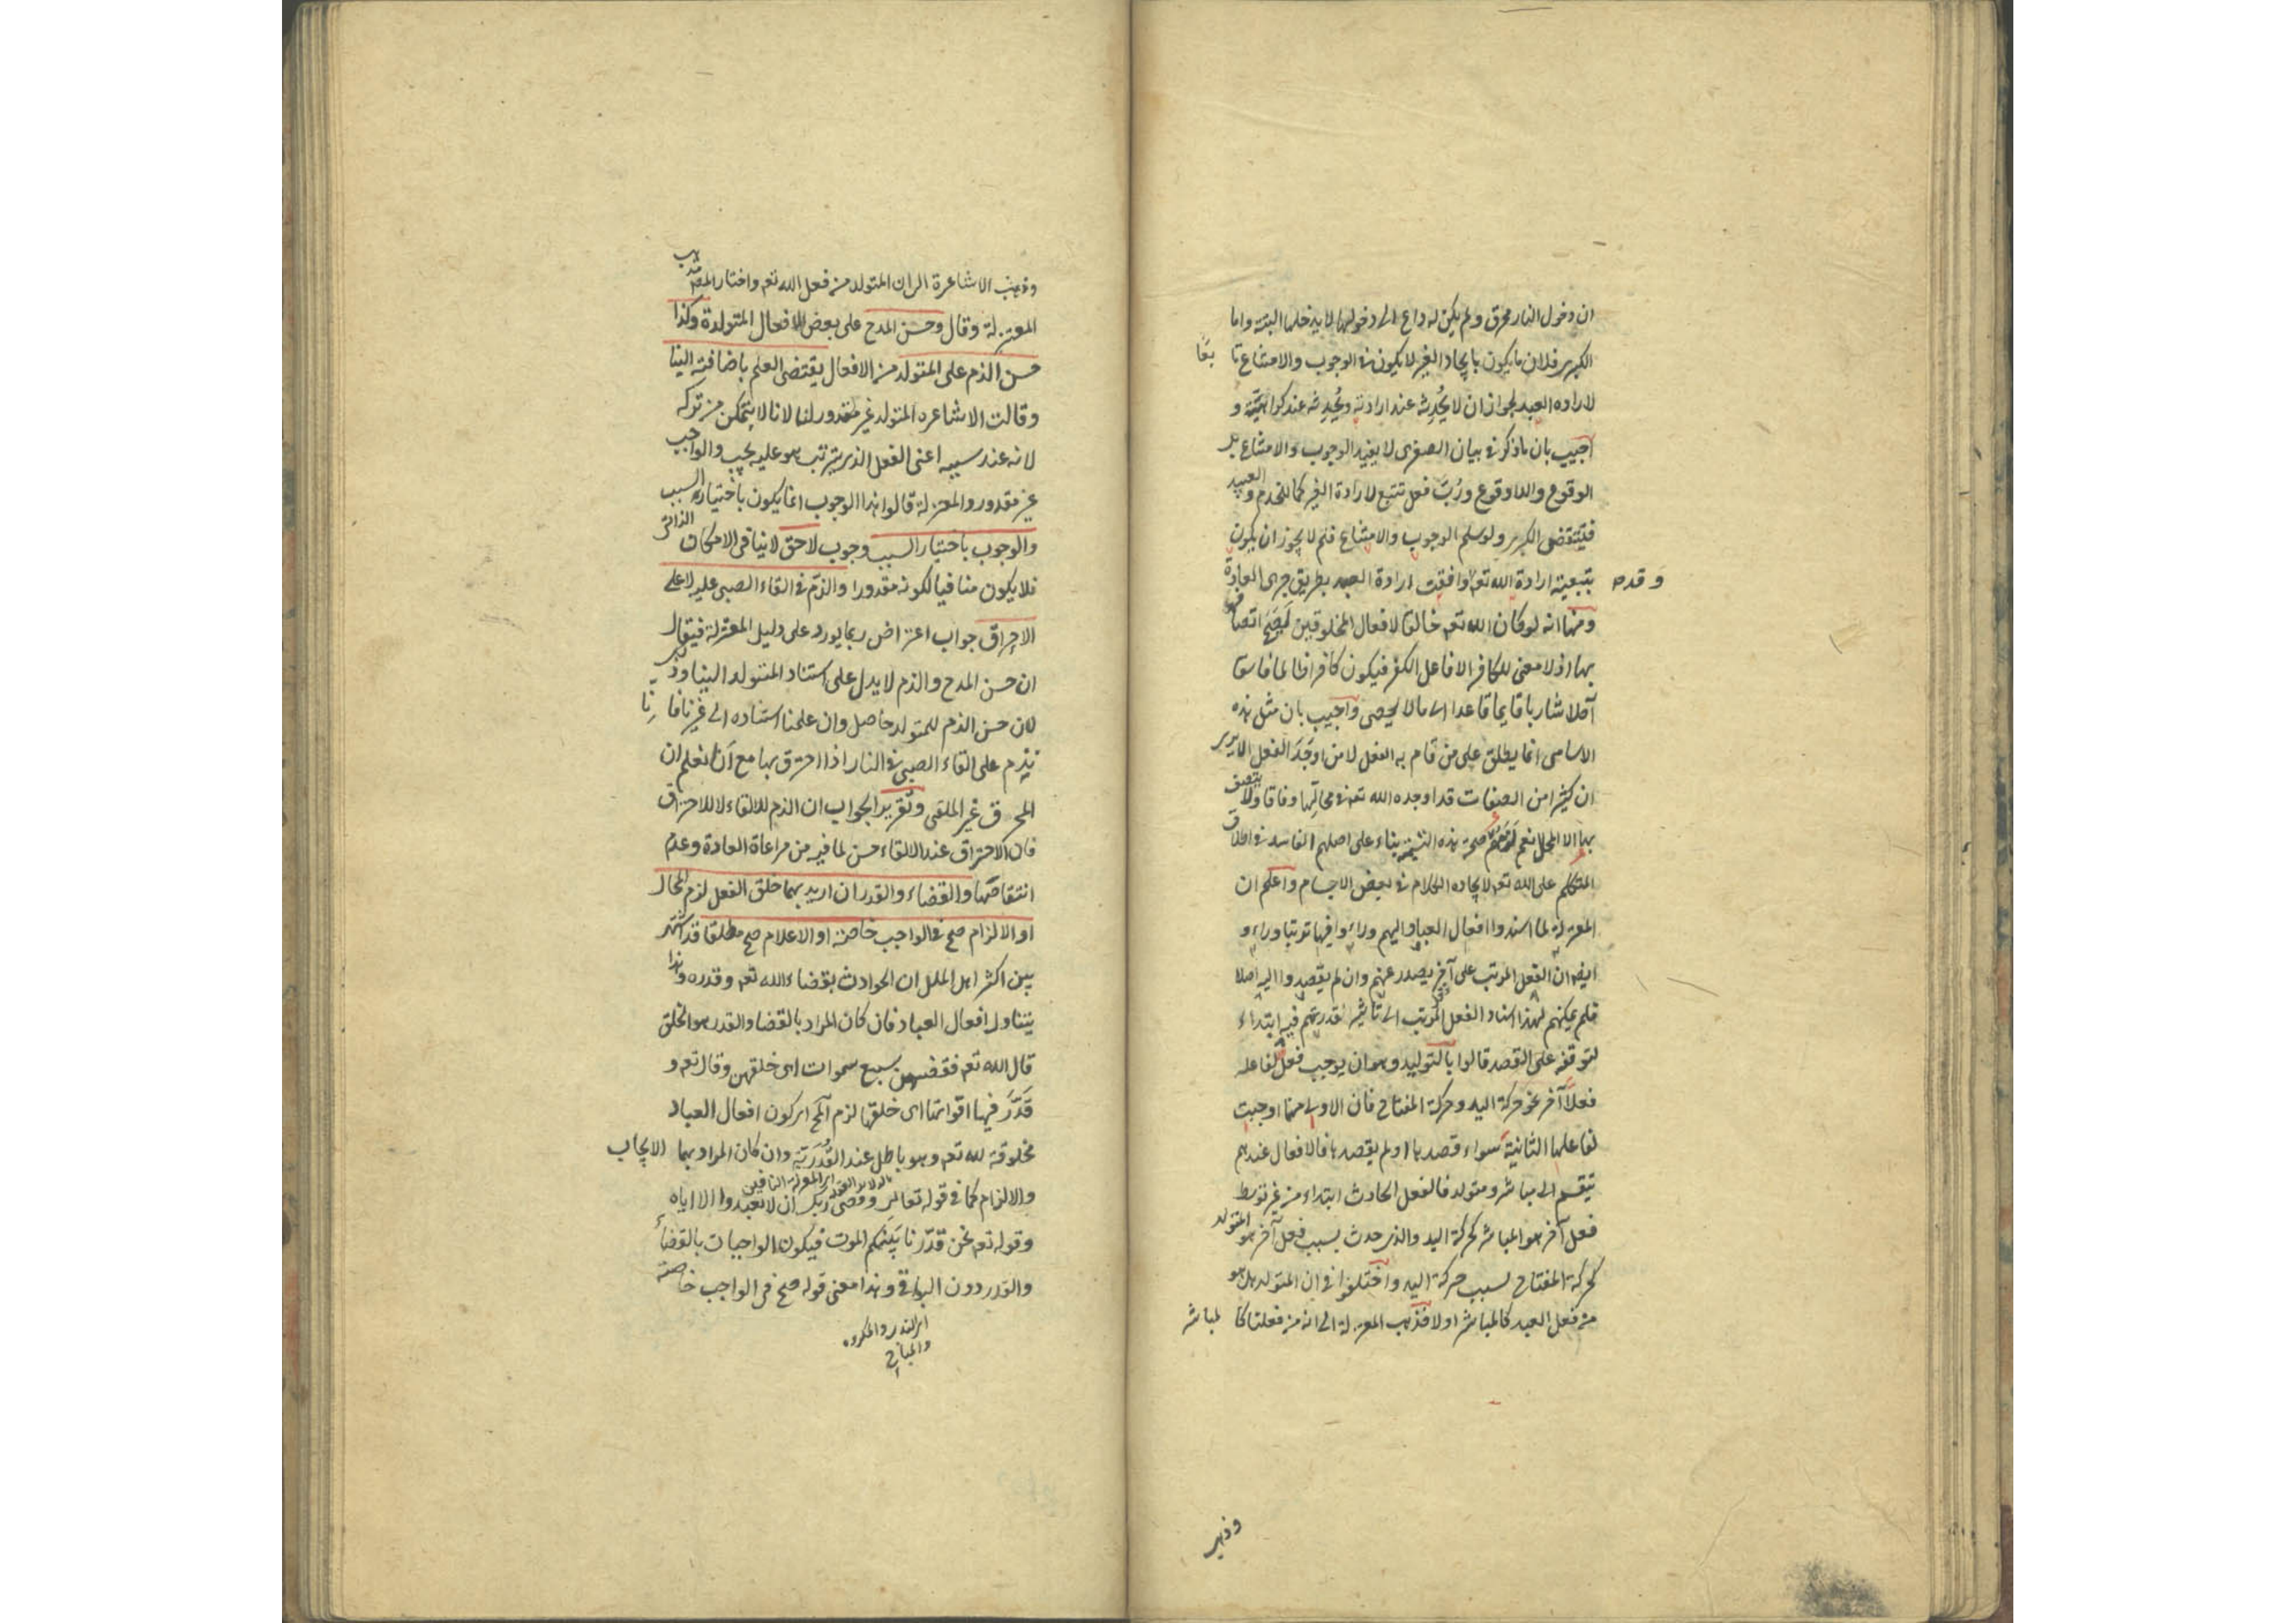 ان دخول النار محرق ولم يكن له داع الى دخولها لا يدخلها البتة واما
الكبرى فلان ما يكون بايجاد الغير لا يكون فى الوجوب والامتناع تابعًا
لارادة العبد لجواز ان لا يُحْدِثه عند ارادته ويُحْدِثه عند كراهيّته و
اجيب بان ما ذكر فى بيان الصغرى لا يفيد الوجوب والامتناع بل
الوقوع واللاوقوع ورُبَّ فعل تتبع لارادة الغير كما للخدم والعبيد
فينتقض الكبرى ولو سلم الوجوب والامتناع فلم لا يجوز ان يكون
بتبعية ارادة الله تعم وافقت ارادة العبد بطريق جرى العادة
وقدح
ومنها انه لو كان الله تعم خالقا لافعال المخلوقين لَصَحّ اتصافه
بها اذ لا معنى للكافر الا فاعل الكفر فيكون كافرا ظالما فاسقا
آكلا شاربا قايما قاعدا الى ما لا يحصى واجيب بان مثل هذه
الاسامى انما يطلق على من قام به الفعل لا من اوجَدَ الفعل الا يرى
ان كثيرا من الصفات قد اوجده الله تعم فى محالّها وفاقا ولا يتصف
بها الا المحل نعم صحة هذه التسمية بناء على اصلهم الفاسد فى اطلاق
المتكلم على الله تعم لايجاده الكلام فى بعض الاجسام واعلم ان
المعتزلة لما اسندوا افعال العباد اليهم وراوا فيها ترتبا وراوا
ايضا ان الفعل المرتب على آخر يصدر عنهم وان لم يقصدوا اليه اصلا
فلم يمكنهم لهذا اسناد الفعل المرتب الى تاثير قدرتهم فيه ابتداء
لتوقفه على القصد قالوا بالتوليد وهو ان يوجب فعل لفاعله
فعلا آخر نحو حركة اليد وحركة المفتاح فان الاولى منهما اوجبت
لفاعلها الثانية سواء قصدها او لم يقصدها فالافعال عندهم
تنقسم الى مباشر ومتولد فالفعل الحادث ابتداء من غير توسط
فعل آخر هو المباشر كحركة اليد والذى حدث بسبب فعل آخر هو المتولد
كحركة المفتاح بسبب حركة اليد واختلفوا فى ان المتولد هل هو
من فعل العبد كالمباشر او لا فذهب المعتزلة الى انه من فعلنا كالمباشر
وذهب
وذهبت الاشاعرة الى ان المتولد من فعل الله تعم واختار المص مذهب
المعتزلة وقال وحسن المدح على بعض الافعال المتولدة وكذا
حسن الذم على المتولد من الافعال يقتضى العلم باضافته الينا
وقالت الاشاعره المتولد غير مقدور لنا لانا لا نتمكن من تركه
لانه عند سببه اعنى الفعل الذى يترتب هو عليه يجب والواجب
غير مقدور والمعتزلة قالوا هذا الوجوب انما يكون باختياره السبب
والوجوب باختيار السبب وجوب لاحق لا ينافى الامكان الذاتى
فلا يكون منافيا لكونه مقدورا والذم فى القاء الصبى عليه لا على
الاحراق جواب اعتراض ربما يورد على دليل المعتزلة فيقال
ان حسن المدح والذم لا يدل على استناد المتولد الينا وذلك
لان حسن الذم للمتولد حاصل وان علمنا استناده الى غيرنا فانا
نذم على القاء الصبى فى النار اذا احترق بها مع انا نعلم ان
المحرق غير الملقى وتقرير الجواب ان الذم للالقاء لا للاحتراق
فان الاحتراق عند الالقاء حسن لما فيه من مراعاة العادة وعدم
انتقاضها والقضاء والقدر ان اريد بهما خلق الفعل لزم المحال
او الالزام صح فى الواجب خاصة او الاعلام صح مطلقا قد اشتهر
بين اكثر اهل الملل ان الحوادث بقضاء الله تعم وقدره وهذا
يتناول افعال العباد فان كان المراد بالقضا والقدر هو الخلق
قال الله تعم فقضيهن سبع سموات اى خلقهن وقال تعم و
قَدَّرَ فيها اقواتها اى خلقها لزم المح اى كون افعال العباد
مخلوقة لله تعم وهو باطل عند القَدَرِيّة وان كان المراد بهما الايجاب
اى المعتزلة النافين
والالزام كما فى قوله تعالى وقضى ربك ان لا تعبدوا الا اياه
وقوله تعم نحن قدّرنا بينكم الموت فيكون الواجبات بالقضاء
والقدر دون البواقى وهذا معنى قوله صح فى الواجب خاصة
اى المندوب والمكروه
والمباح